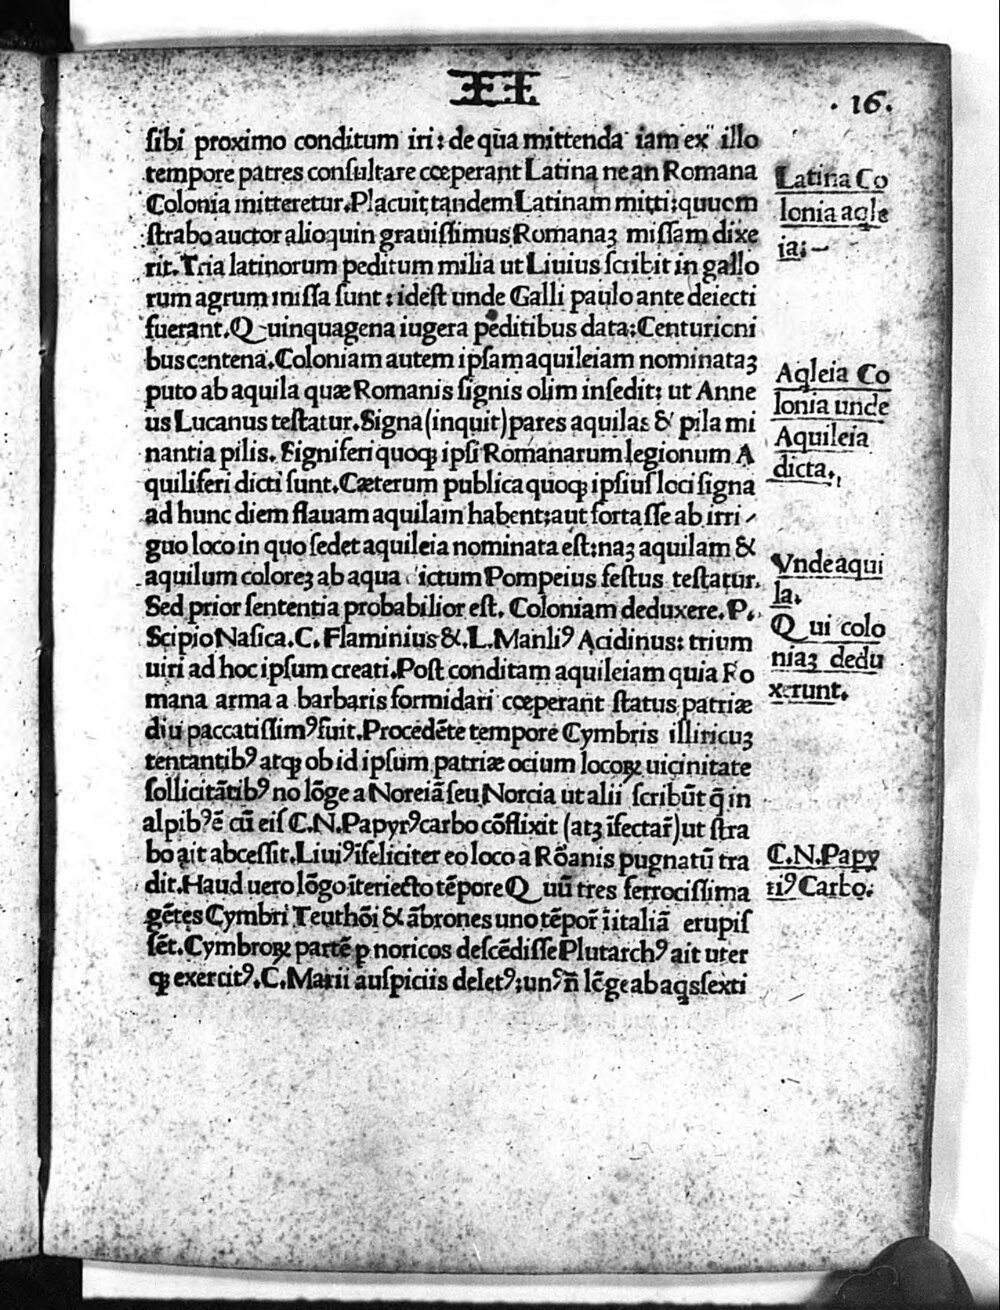 III
. 16.
ſibi proximo conditum iri: de qua mittenda iam ex illo
tempore patres conſultare cœperant Latina ne an Romana
Colonia mitteretur. Placuit tandem Latinam mitti: quuem
ſtrabo auctor alioquin grauiſſimus Romanaꝫ miſſam dixe
rit. Tria latinorum peditum milia ut Liuius ſcribit in gallo
rum agrum miſſa ſunt: ideſt unde Galli paulo ante deiecti
fuerant. Quinquagena iugera peditibus data: Centurioni
bus centena. Coloniam autem ipſam aquileiam nominataꝫ
puto ab aquila quæ Romanis ſignis olim inſedit: ut Anne
us Lucanus teſtatur. Signa (inquit) pares aquilas & pila mi
nantia pilis. Signiferi quoqꝫ ipſi Romanarum legionum A
quiliferi dicti ſunt. Cæterum publica quoqꝫ ipſiuſ loci ſigna
ad hunc diem flauam aquilam habent; aut fortaſſe ab irri
guo loco in quo ſedet aquileia nominata eſt: naꝫ aquilam &
aquilum coloreꝫ ab aqua ictum Pompeius feſtus teſtatur.
Sed prior ſententia probabilior eſt. Coloniam deduxere. P.
Scipio Naſica. C. Flaminius &. L. Manliꝰ Acidinus: trium
uiri ad hoc ipſum creati. Poſt conditam aquileiam quia Ro
mana arma a barbaris formidari cœperant ſtatus patriæ
diu paccatiſſimꝰ fuit. Procedēte tempore Cymbris illiricuꝫ
tentantibꝰ atqꝫ ob id ipſum patriæ ocium locoꝝ uicinitate
ſollicitātibꝰ no lōge a Noreiā ſeu Norcia ut alii ſcribūt q̄ in
alpibꝰ ē cū eiſ C. N. Papyrꝰ carbo cōflixit (atꝫ īfectar̄) ut ſtra
bo ait abceſſit. Liuiꝰ īfeliciter eo loco a Rōanis pugnatū tra
dit. Haud uero lōgo īteriecto tēpore Quū tres ferrociſſima
gētes Cymbri Teuthōi & ābrones uno tēpor̄ ī italiā erupiſ
ſēt. Cymbroꝝ partē ꝑ noricos deſcēdiſſe Plutarchꝰ ait uter
qꝫ exercitꝰ. C. Marii auſpiciis deletꝰ; unꝰ n̄ lōge ab aqs ſexti
Latina Co
lonia aqle
ia:
Aqleia Co
lonia unde
Aquileia
dicta.
Vnde aqui
la.
Qui colo
niaꝫ dedu
xerunt.
C. N. Papy
riꝰ Carbo.